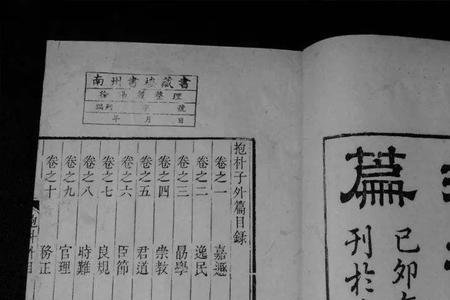 篇
己卯
刊於
南州書樓藏書
整理
號
年 月 日
抱朴子外篇目録
卷之一 嘉遯
卷之二 逸民
卷之三 勗學
卷之四 崇教
卷之五 君道
卷之六 臣節
卷之七 良規
卷之八 時難
卷之九 官理
卷之十 務正